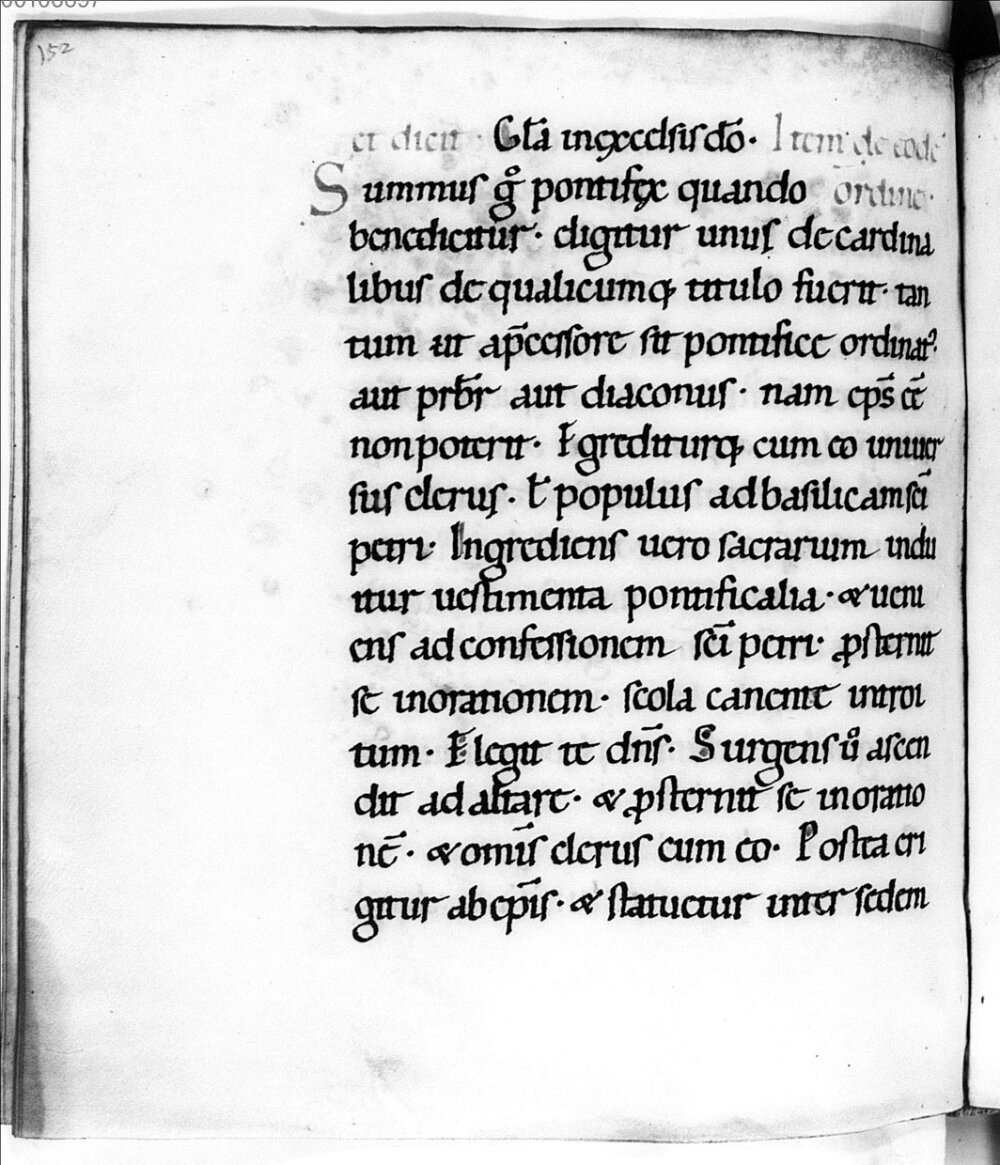 152
et dicit · Gl̄a in excelsis dō· Item de eodē
Summus g̊ pontifex quando ordine·
benedicitur· eligitur unus de cardina
libus de qualicumq; titulo fuerit· tan
tum ut a p̄cessore sit pontifice ordinat᾽·
aut prb̄r aut diaconus· nam ep̄s eē
non poterit· Egrediturq; cum eo uniuer
sus clerus· & populus ad basilicam sc̄i
petri· Ingrediens uero sacrarium indu
itur uestimenta pontificalia· & ueni
ens ad confessionem sc̄i petri· ꝓsternit
se in orationem· scola canente introi
tum· Elegit te dn̄s· Surgens ů ascen
dit ad altare· & ꝓsternit se in oratio
nē· & omīs clerus cum eo· Postea eri
gitur ab ep̄is· & statuetur inter sedem